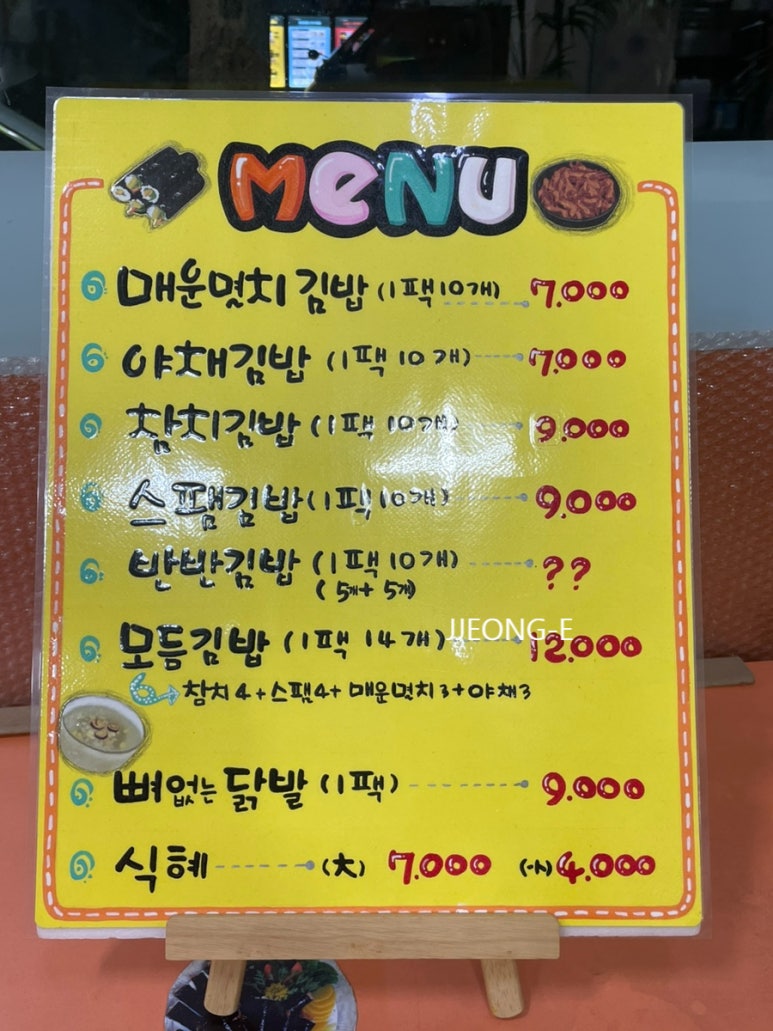 MENU
매운멸치김밥 (1팩 10개) 7.000
야채김밥 (1팩 10개) 7.000
참치김밥 (1팩 10개) 9.000
스팸김밥 (1팩 10개) 9.000
반반김밥 (1팩 10개) ??
(5개+5개)
모듬김밥 (1팩 14개) 12.000
JJEONG-E
참치4+스팸4+매운멸치3+야채3
뼈없는 닭발 (1팩) 9.000
식혜 (大) 7.000 (小) 4.000